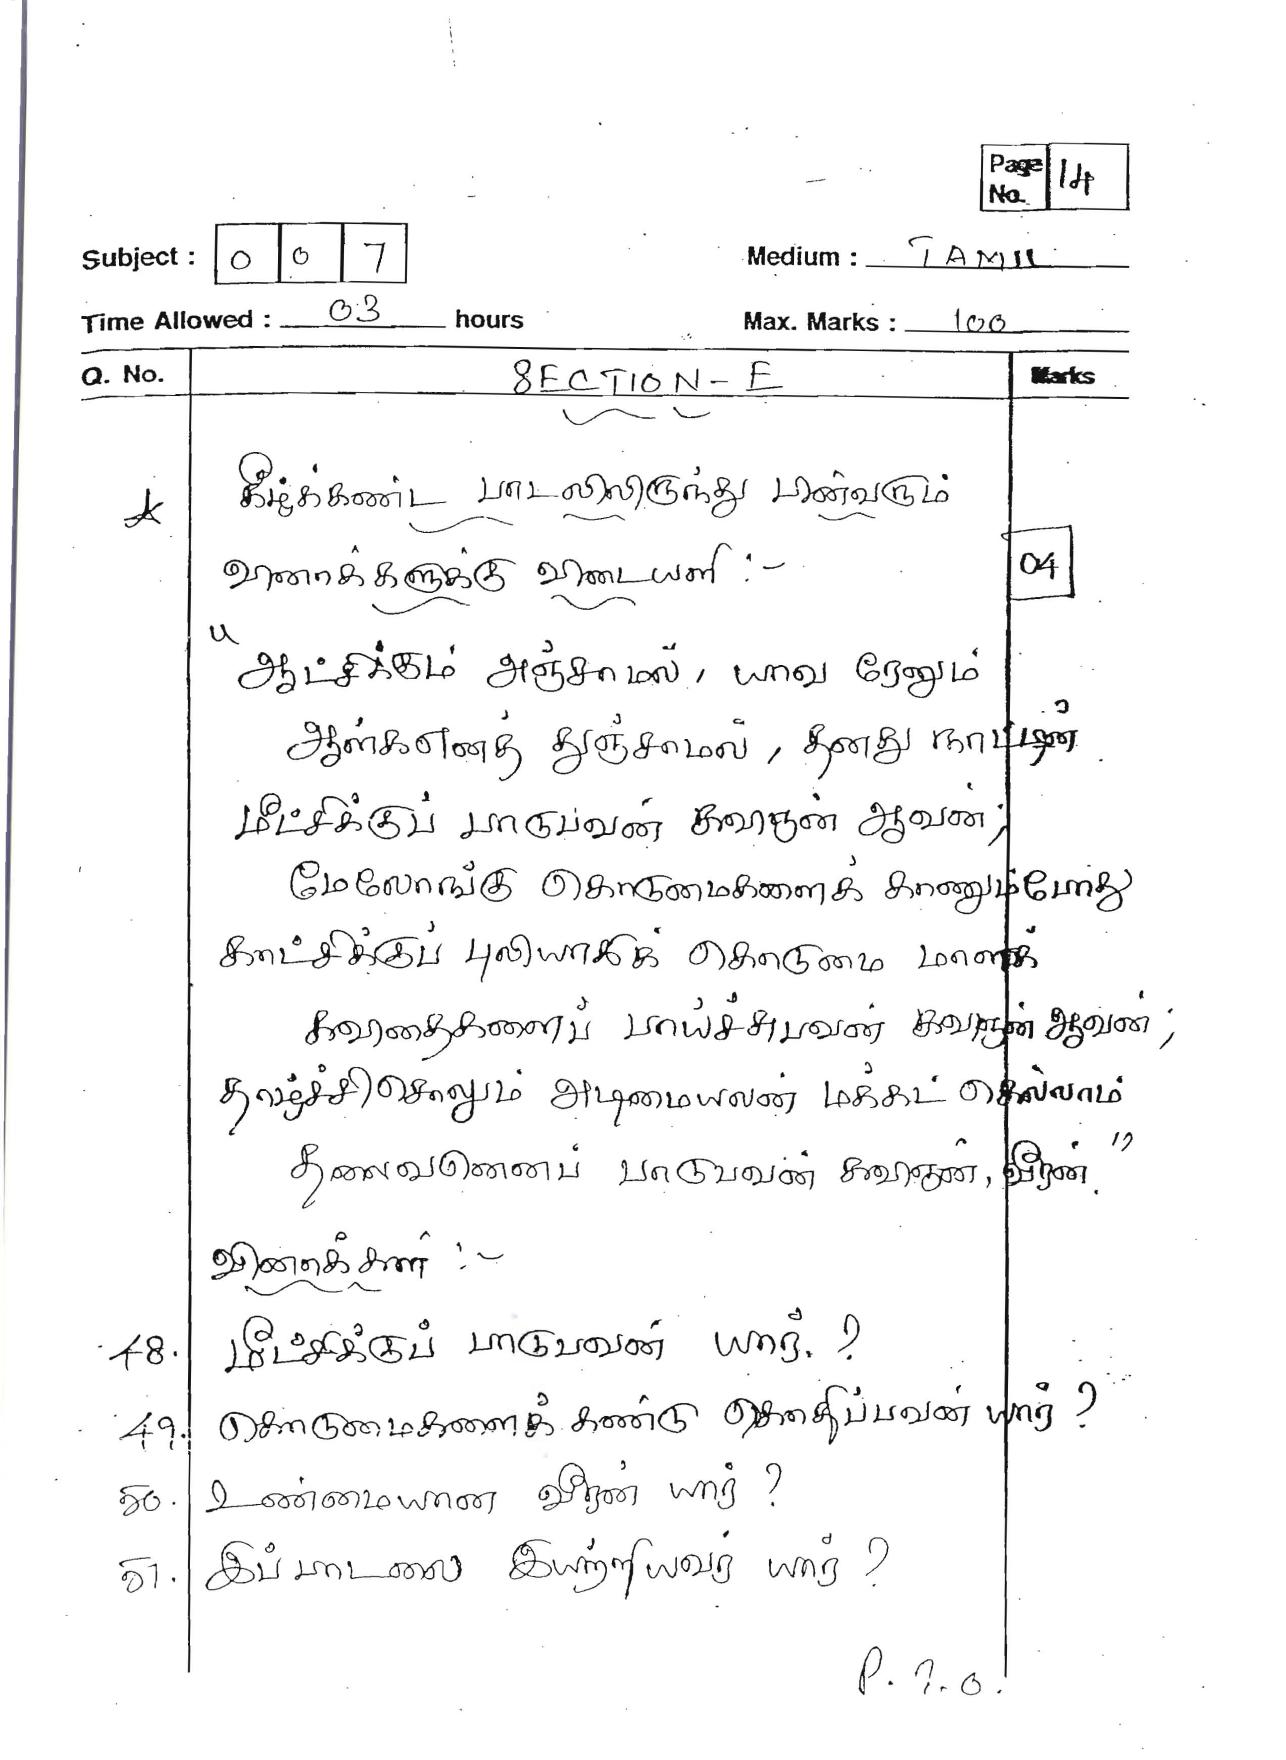 Page No. 14
Subject : 0 0 7 Medium : TAMIL
Time Allowed : 03 hours Max. Marks : 100
Q. No. SECTION - E Marks
கீழ்க்கண்ட பாடலிலிருந்து பின்வரும்
வினாக்களுக்கு விடையளி :- 04
"ஆட்சிக்கும் அஞ்சாமல், யாவ ரேனும்
ஆள்கஎனத் துஞ்சாமல், தனது நாட்டின்
மீட்சிக்குப் பாடுபவன் கவிஞன் ஆவன்;
மேலோங்கு கொடுமைகளைக் காணும்போது
காட்சிக்குப் புலியாகிக் கொடுமை மாளக்
கவிதைகளைப் பாய்ச்சுபவன் கவிஞன் ஆவன்;
தாழ்ச்சிசொலும் அடிமையலன் மக்கட் கெல்லாம்
தலைவனெனப் பாடுபவன் கவிஞன், வீரன்"
வினாக்கள் :-
48. மீட்சிக்குப் பாடுபவன் யார்?
49. கொடுமைகளைக் கண்டு கொதிப்பவன் யார்?
50. உண்மையான வீரன் யார்?
51. இப்பாடலை இயற்றியவர் யார்?
P.T.O.